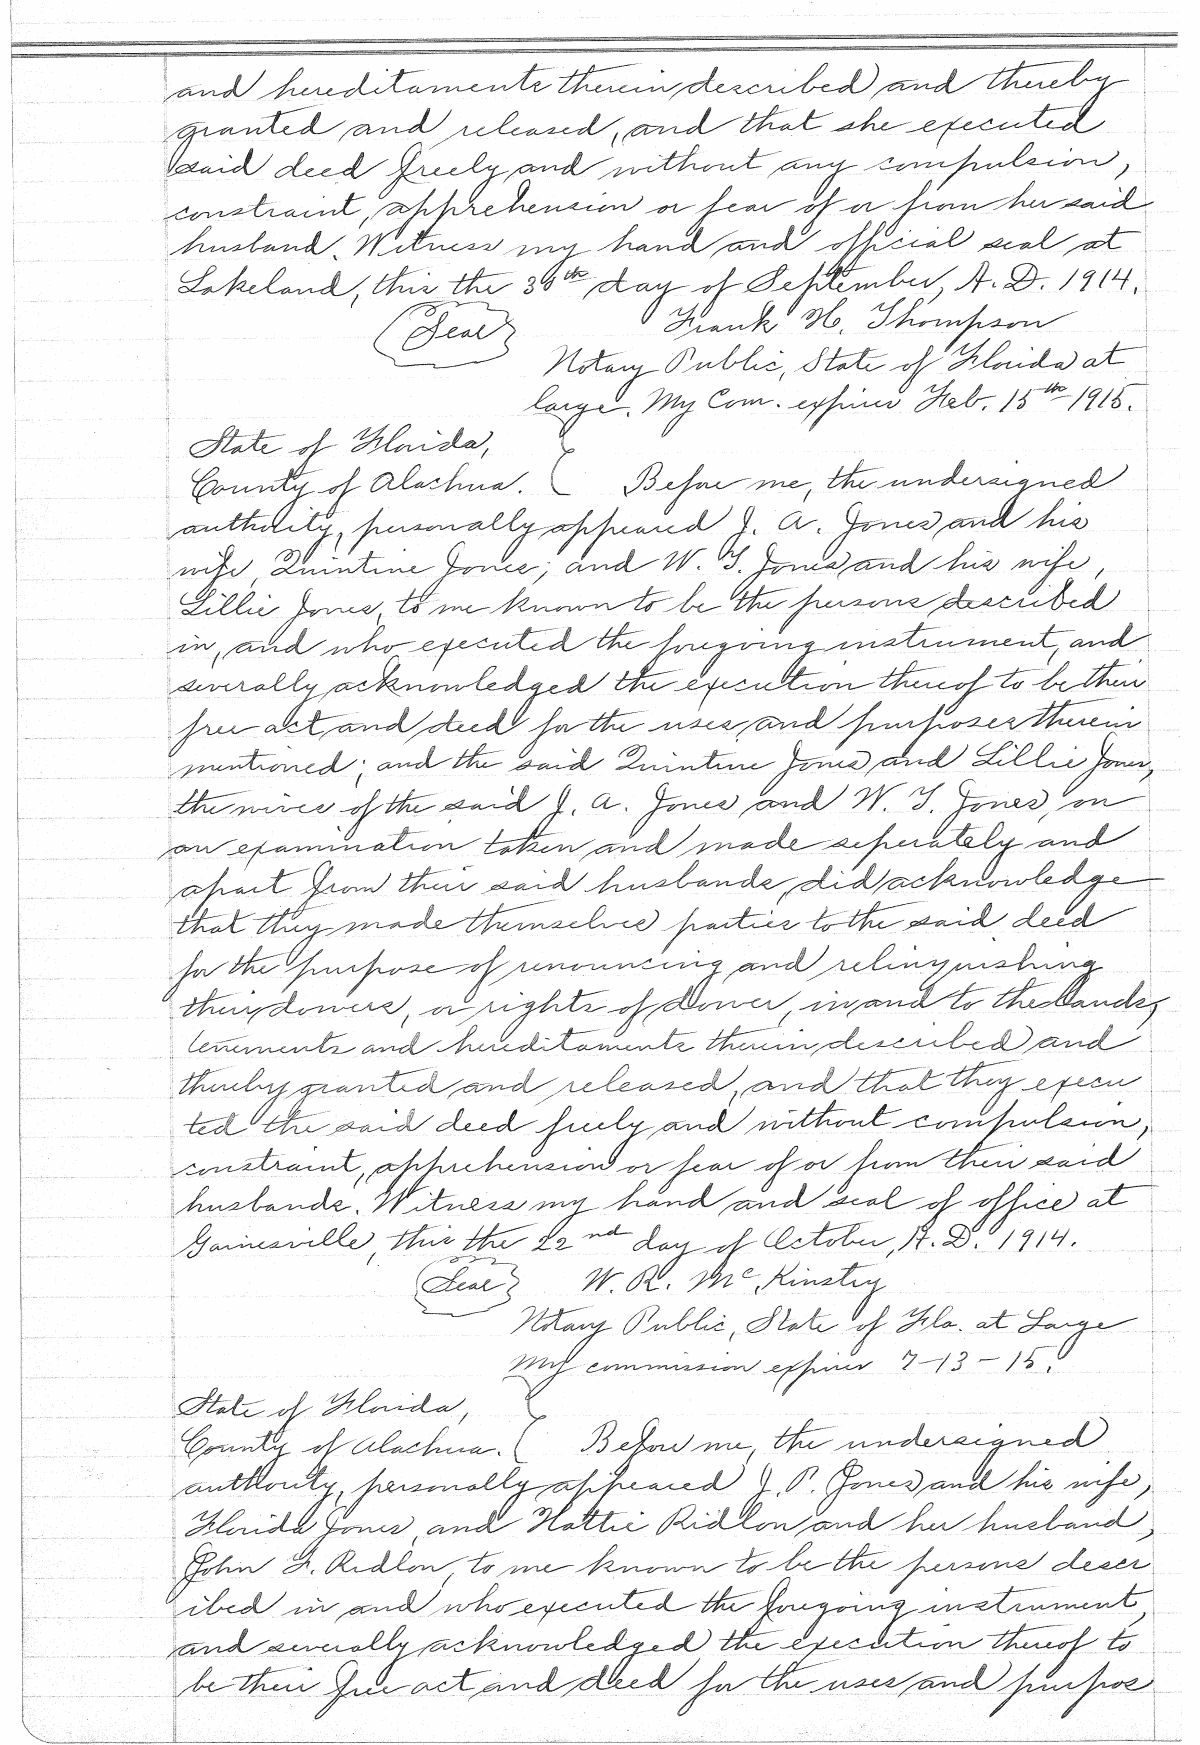 and hereditaments therein described and thereby
granted and released, and that she executed
said deed freely and without any compulsion,
constraint, apprehension or fear of or from her said
husband. Witness my hand and official seal at
Lakeland, this the 30th day of September, A. D. 1914.
(Seal) Frank H. Thompson
Notary Public, State of Florida at
large. My Com. expires Feb. 15th 1915.
State of Florida,
County of Alachua. Before me, the undersigned
authority, personally appeared J. A. Jones and his
wife, Quintine Jones; and W. T. Jones and his wife,
Lillie Jones, to me known to be the persons described
in, and who executed the foregoing instrument, and
severally acknowledged the execution thereof to be their
free act and deed for the uses and purposes therein
mentioned; and the said Quintine Jones and Lillie Jones,
the wives of the said J. A. Jones and W. T. Jones, on
an examination taken and made seperately and
apart from their said husbands, did acknowledge
that they made themselves parties to the said deed
for the purpose of renouncing and relinquishing
their dowers, or rights of dower, in and to the lands,
tenements and hereditaments therein described and
thereby granted and released, and that they execu
ted the said deed freely and without compulsion,
constraint, apprehension or fear of or from their said
husbands. Witness my hand and seal of office at
Gainesville, this the 22nd day of October, A. D. 1914.
(Seal) W. R. McKinstry
Notary Public, State of Fla. at Large
My commission expires 7-13-15.
State of Florida,
County of Alachua. Before me, the undersigned
authority, personally appeared J. P. Jones and his wife,
Florida Jones, and Hattie Ridlon and her husband,
John F. Ridlon, to me known to be the persons descr
ibed in and who executed the foregoing instrument,
and severally acknowledged the execution thereof to
be their free act and deed for the uses and purpos